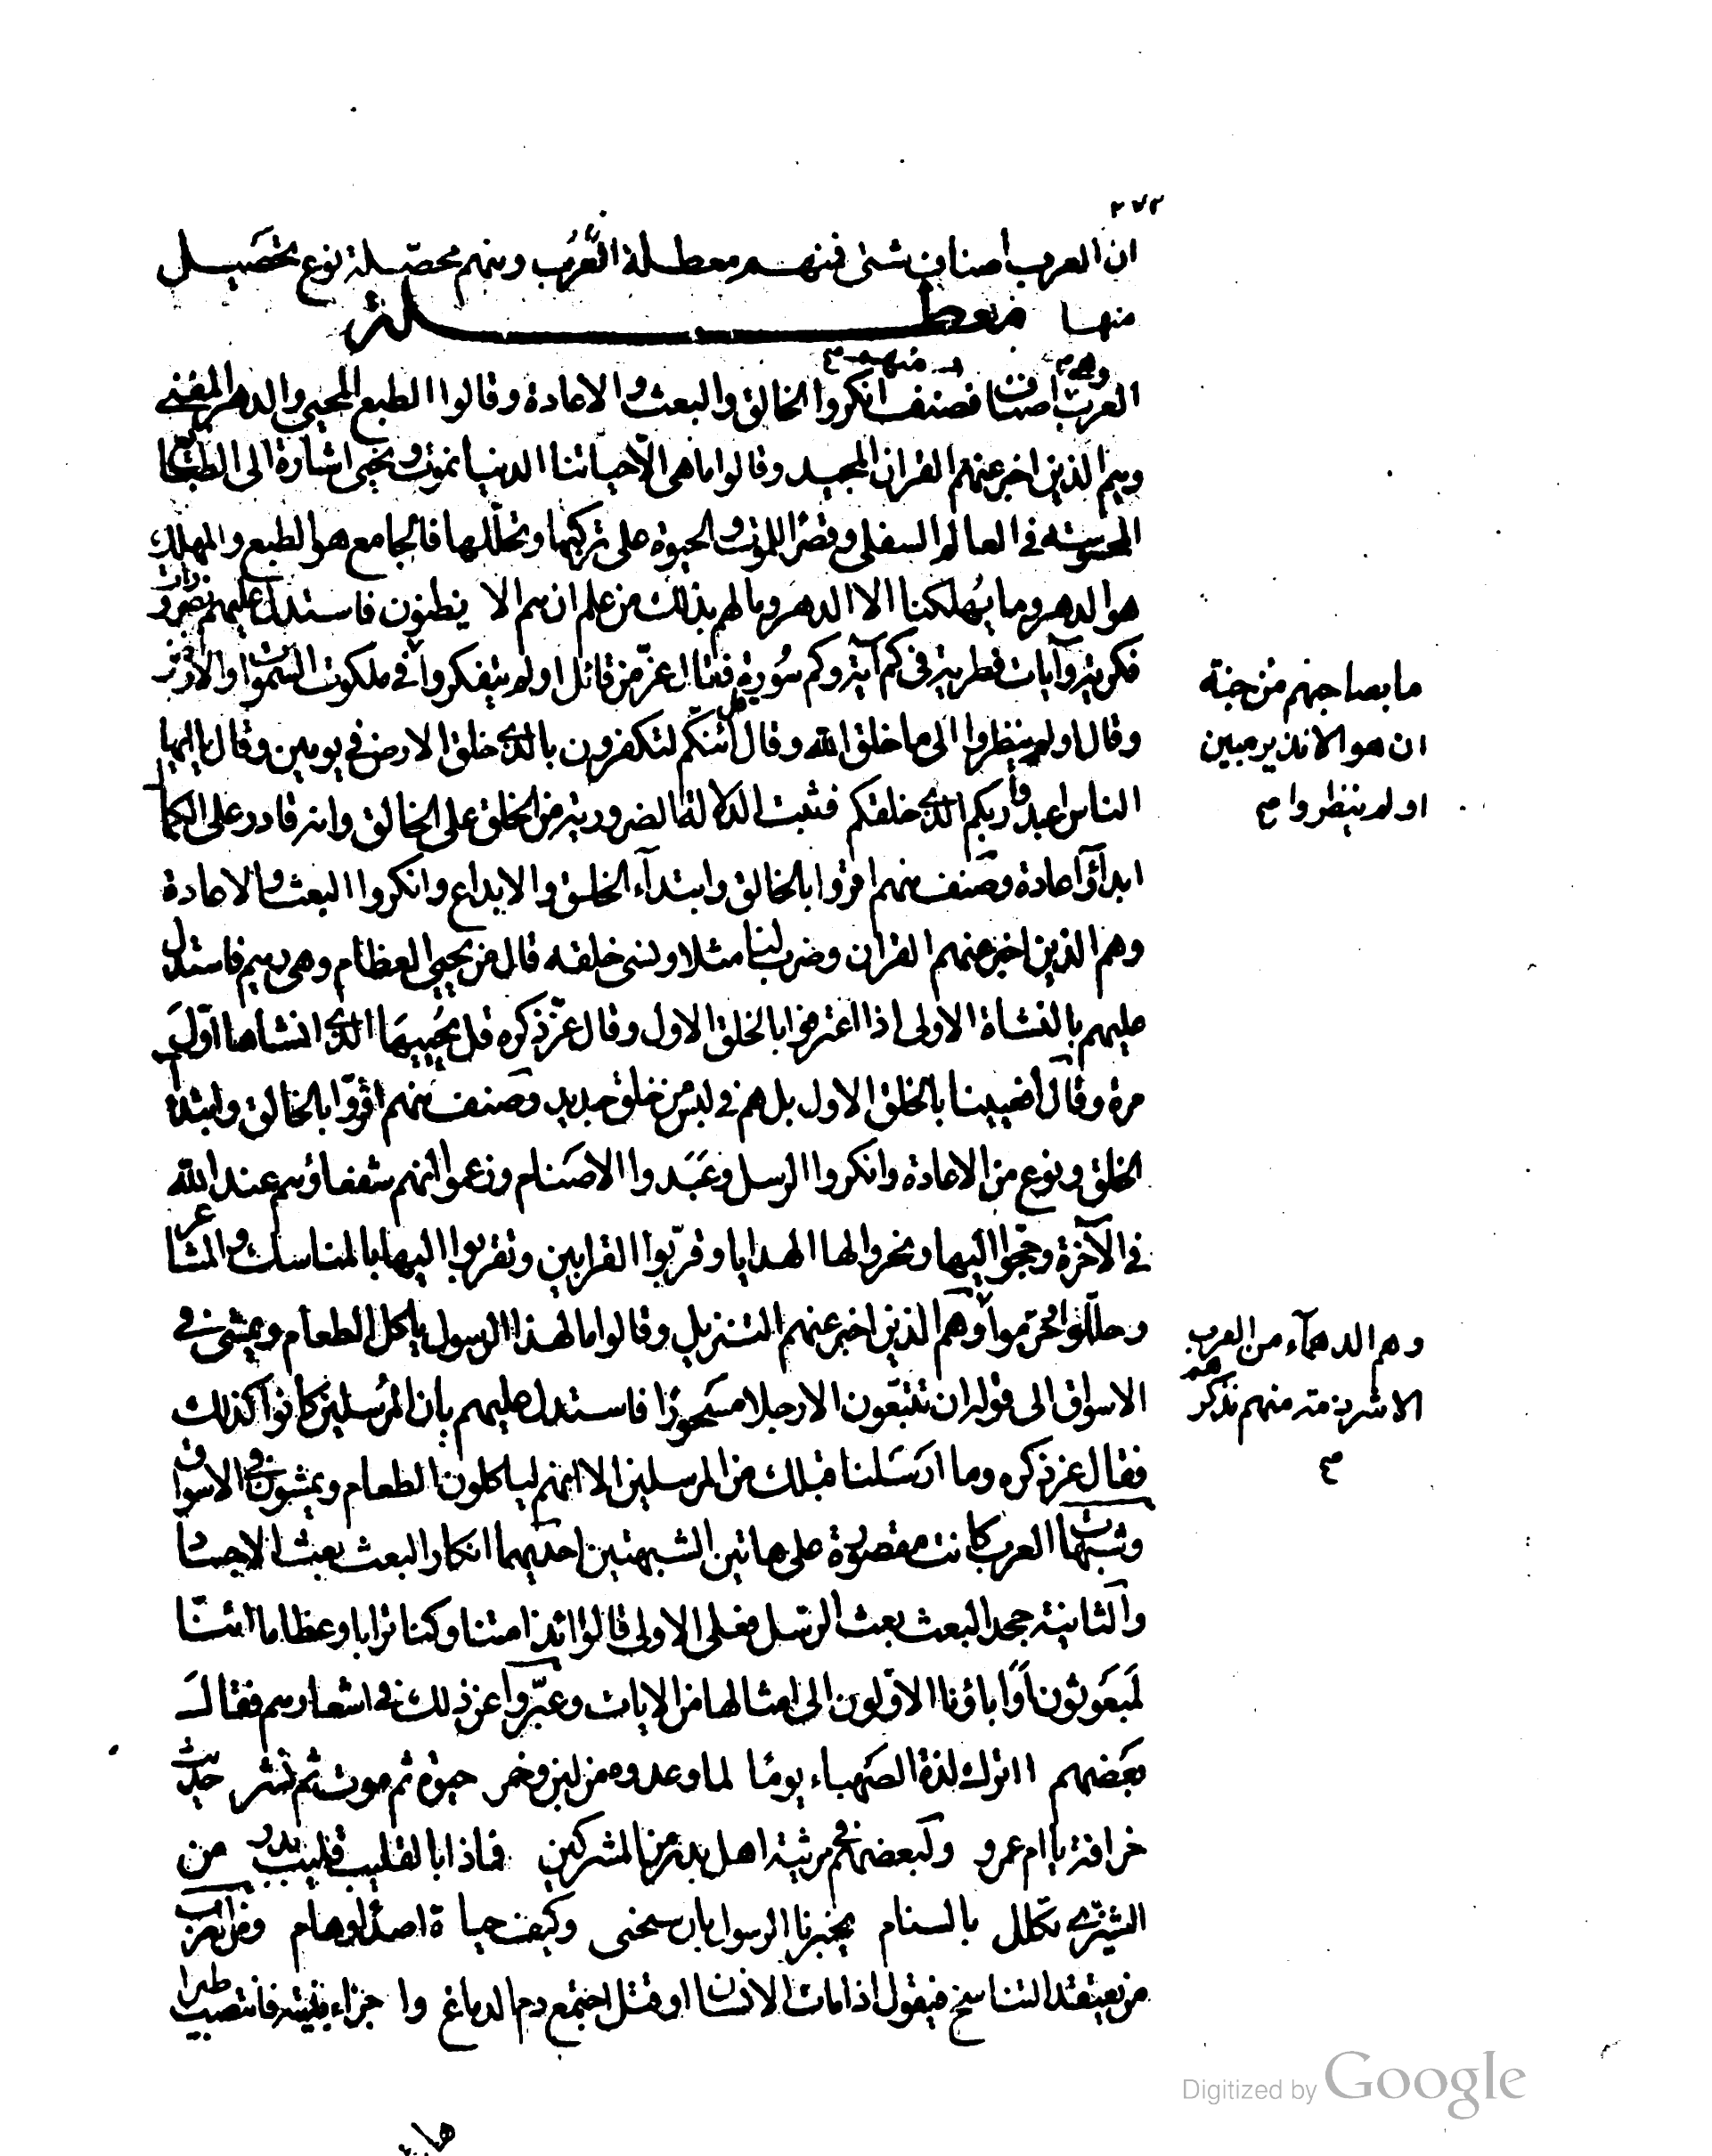 ٢٧٢
ان العرب اصناف شتى فمنهم معطلة العَرب ومنهم محصّلة نوع تحصَيل
منها معطلة
وهم منهم صح
العرب اصناف فصنف انكروا الخالق والبعث والاعادة وقالوا الطبع المحيي والدهر المفني
وهم الذين اخبر عنهم القران المجيد وقالوا ما هى الّا حياتنا الدنيا نموت ونحيى اشارة الى الطبائع
المحسوسة في العالم السفلى وقصرًا للموت والحيوة على تركبها وتحلّلها فالجامع هو الطبع والمهلك
هو الدهر وما يُهلكنا الا الدهر وما لهم بذلك من علم ان هم الا يظنون فاستدل عليهم بضرورات
فكرية وآيات فطرية فى كم آية وكم سُورة فقال عزّ من قائل اولم يتفكروا فى ملكوت السّموات والارض
وقال اولم ينظروا الى ما خلق الله وقال أئنكم لتكفرون بالذى خلق الارض في يومين وقال يا ايها
الناس اعبدوا ربكم الذى خلقكم فثبت الدلالة الضرورية من الخلق على الخالق وانه قادر على الكمال
ابداءً واعادة وصنف منهم اقرّوا بالخالق وابتداء الخلق والابداع وانكروا البعث والاعادة
وهم الذين اخبر عنهم القران وضرب لنا مثلا ونسى خلقه قال من يحيى العظام وهى رميم فاستدل
عليهم بالنشاة الاولى اذا اعترفوا بالخلق الاول وقال عزّ ذكره قل يحُييهَا الذى انشاها اوّل
مرة وقال أفعيينا بالخلق الاول بل هم في لبس من خلق جديد وصنف منهم اقرّوا بالخالق وابتداء
الخلق ونوع من الاعادة وانكروا الرسل وعَبَدوا الاصَنام وزعموا انهم شفعاؤهم عند الله
في الآخرة وحجّوا اليها ونحروا لها الهدايا وقرّبوا القرابين وتقربوا اليها بالمناسك والمشاعر
وحلّلوا وحُرّموا وهم الذين اخبر عنهم التنزيل وقالوا ما لهذا الرسول ياكل الطعام ويمشى فى
الاسواق الى قوله ان تتبّعون الا رجلا مسَحورًا فاستدل عليهم بان المُرسلين كانوا كذلك
فقال عز ذكره وما ارَسَلنا قبلك من المرسلين الا انهم لياكلون الطعام ويمشون في الاسواق
وشبهات العرب كانت مقصورة على هاتين الشبهتين احديهما انكار البعث بعث الاجساد
والثانية جحد البعث بعث الرسل فعلى الاولى قالوا ائذا متنا وكنا ترابا وعظاما ائنّا
لمَبَعَوثون أوَاباؤنا الاوّلون الى امثالها من الايات وعبّروا عن ذلك في اشعارهم فقال
بَعَضهم ااترك لذة الصَهباء يومًا لما وعدوه من لبن وخمر حيوة ثم موت ثم نشر حديث
خرافة يا ام عمرو ولبعضهم في مرثية اهل بدر من المشركين فماذا بالقليب قليب بدر من
الشيزى تكلل بالسنام يخبرنا الرسول بان سنحيى وكيف حياة اصداء وهام ومن العرب
من يعتقد التناسخ فيقول اذا مات الانسان او قتل اجتمع دم الدماغ واجزاء بنيته فانتصب طيرا
ما بصاحبهم من جنة
ان هو الا نذير مبين
اولم ينظروا صح
وهم الدهمآء من العرب
الا شرذمة منهم نذكرهم
صح